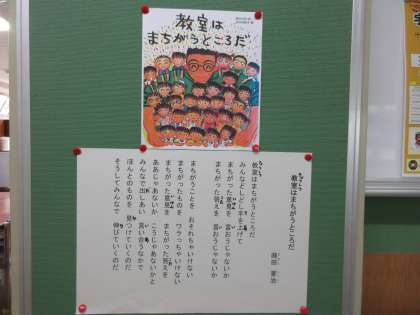 教室は
まちがうところだ
教室はまちがうところだ
蒔田 晋治
教室はまちがうところだ
みんなどしどし手を上げて
まちがった意見を 言おうじゃないか
まちがった答えを 言おうじゃないか
まちがうことを おそれちゃいけない
まちがったものを ワラっちゃいけない
まちがった意見を まちがった答えを
ああじゃあないか こうじゃあないかと
みんなで出しあい 言い合うなかで
ほんとのものを 見つけていくのだ
そうしてみんなで 伸びていくのだ